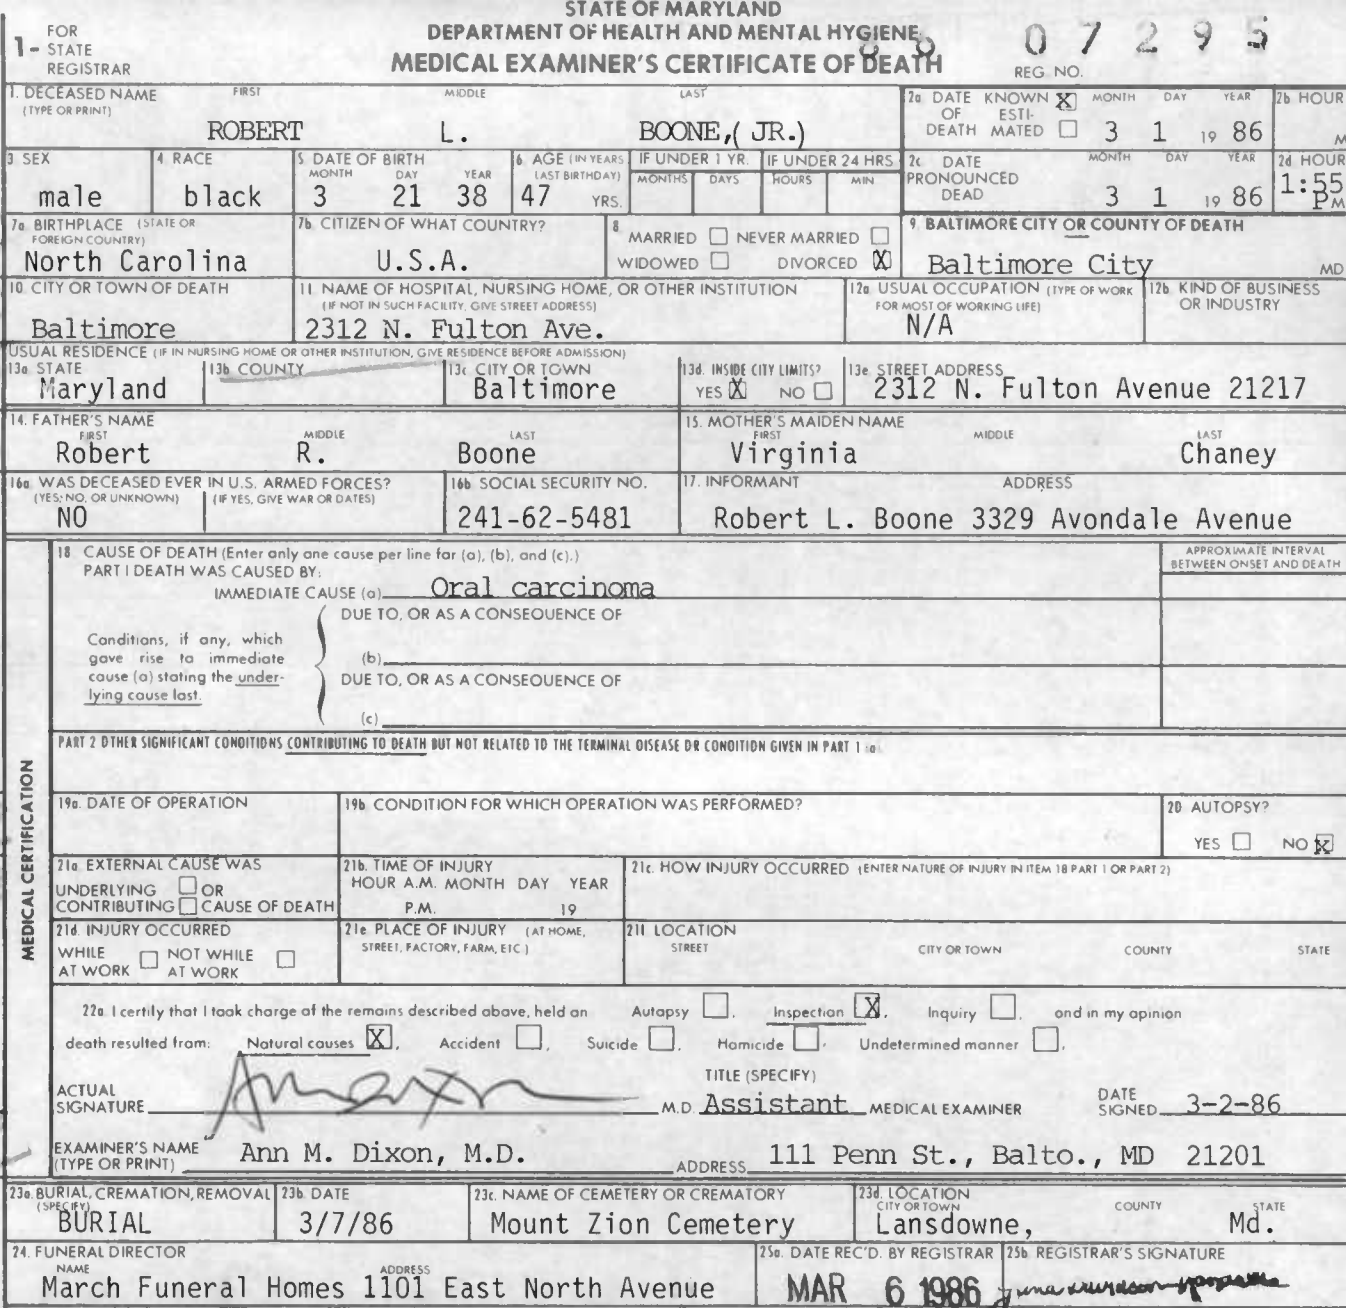 STATE OF MARYLAND
DEPARTMENT OF HEALTH AND MENTAL HYGIENE
MEDICAL EXAMINER'S CERTIFICATE OF DEATH
1- FOR STATE REGISTRAR
86 07295
REG. NO.
1. DECEASED NAME (TYPE OR PRINT) FIRST MIDDLE LAST
ROBERT L. BOONE,( JR.)
2a DATE OF DEATH KNOWN X ESTIMATED MONTH DAY YEAR
3 1 19 86
2b HOUR M
3 SEX
male
4. RACE
black
5 DATE OF BIRTH MONTH DAY YEAR
3 21 38
6 AGE (IN YEARS LAST BIRTHDAY)
47 YRS.
IF UNDER 1 YR. MONTHS DAYS
IF UNDER 24 HRS HOURS MIN
2c DATE PRONOUNCED DEAD MONTH DAY YEAR
3 1 19 86
2d HOUR
1:55 PM
7a BIRTHPLACE (STATE OR FOREIGN COUNTRY)
North Carolina
7b CITIZEN OF WHAT COUNTRY?
U.S.A.
8 MARRIED NEVER MARRIED
WIDOWED DIVORCED X
9. BALTIMORE CITY OR COUNTY OF DEATH
Baltimore City MD
10. CITY OR TOWN OF DEATH
Baltimore
11. NAME OF HOSPITAL, NURSING HOME, OR OTHER INSTITUTION
(IF NOT IN SUCH FACILITY, GIVE STREET ADDRESS)
2312 N. Fulton Ave.
12a. USUAL OCCUPATION (TYPE OF WORK FOR MOST OF WORKING LIFE)
N/A
12b. KIND OF BUSINESS OR INDUSTRY
USUAL RESIDENCE (IF IN NURSING HOME OR OTHER INSTITUTION, GIVE RESIDENCE BEFORE ADMISSION)
13a STATE
Maryland
13b COUNTY
13c CITY OR TOWN
Baltimore
13d. INSIDE CITY LIMITS?
YES X NO
13e. STREET ADDRESS
2312 N. Fulton Avenue 21217
14. FATHER'S NAME FIRST MIDDLE LAST
Robert R. Boone
15. MOTHER'S MAIDEN NAME FIRST MIDDLE LAST
Virginia Chaney
16a WAS DECEASED EVER IN U.S. ARMED FORCES?
(YES, NO, OR UNKNOWN) (IF YES, GIVE WAR OR DATES)
NO
16b SOCIAL SECURITY NO.
241-62-5481
17. INFORMANT ADDRESS
Robert L. Boone 3329 Avondale Avenue
MEDICAL CERTIFICATION
18 CAUSE OF DEATH (Enter only one cause per line for (a), (b), and (c).)
PART I DEATH WAS CAUSED BY:
APPROXIMATE INTERVAL BETWEEN ONSET AND DEATH
IMMEDIATE CAUSE (a) Oral carcinoma
DUE TO, OR AS A CONSEQUENCE OF
Conditions, if any, which gave rise to immediate cause (a) stating the underlying cause last.
(b)
DUE TO, OR AS A CONSEQUENCE OF
(c)
PART 2 OTHER SIGNIFICANT CONDITIONS CONTRIBUTING TO DEATH BUT NOT RELATED TO THE TERMINAL DISEASE OR CONDITION GIVEN IN PART 1 (a)
19a. DATE OF OPERATION
19b CONDITION FOR WHICH OPERATION WAS PERFORMED?
20 AUTOPSY?
YES NO X
21a EXTERNAL CAUSE WAS
UNDERLYING OR
CONTRIBUTING CAUSE OF DEATH
21b. TIME OF INJURY
HOUR A.M. MONTH DAY YEAR
P.M. 19
21c. HOW INJURY OCCURRED (ENTER NATURE OF INJURY IN ITEM 18 PART 1 OR PART 2)
21d. INJURY OCCURRED
WHILE AT WORK NOT WHILE AT WORK
21e PLACE OF INJURY (AT HOME, STREET, FACTORY, FARM, ETC)
21f LOCATION
STREET CITY OR TOWN COUNTY STATE
22a I certify that I took charge of the remains described above, held an Autopsy , Inspection X, Inquiry , and in my opinion
death resulted from: Natural causes X, Accident , Suicide , Homicide , Undetermined manner .
ACTUAL SIGNATURE
TITLE (SPECIFY)
M.D. Assistant MEDICAL EXAMINER
DATE SIGNED 3-2-86
EXAMINER'S NAME (TYPE OR PRINT) Ann M. Dixon, M.D.
ADDRESS 111 Penn St., Balto., MD 21201
23a. BURIAL, CREMATION, REMOVAL (SPECIFY)
BURIAL
23b. DATE
3/7/86
23c. NAME OF CEMETERY OR CREMATORY
Mount Zion Cemetery
23d. LOCATION CITY OR TOWN COUNTY STATE
Lansdowne, Md.
24. FUNERAL DIRECTOR NAME ADDRESS
March Funeral Homes 1101 East North Avenue
25a. DATE REC'D. BY REGISTRAR
MAR 6 1986
25b. REGISTRAR'S SIGNATURE